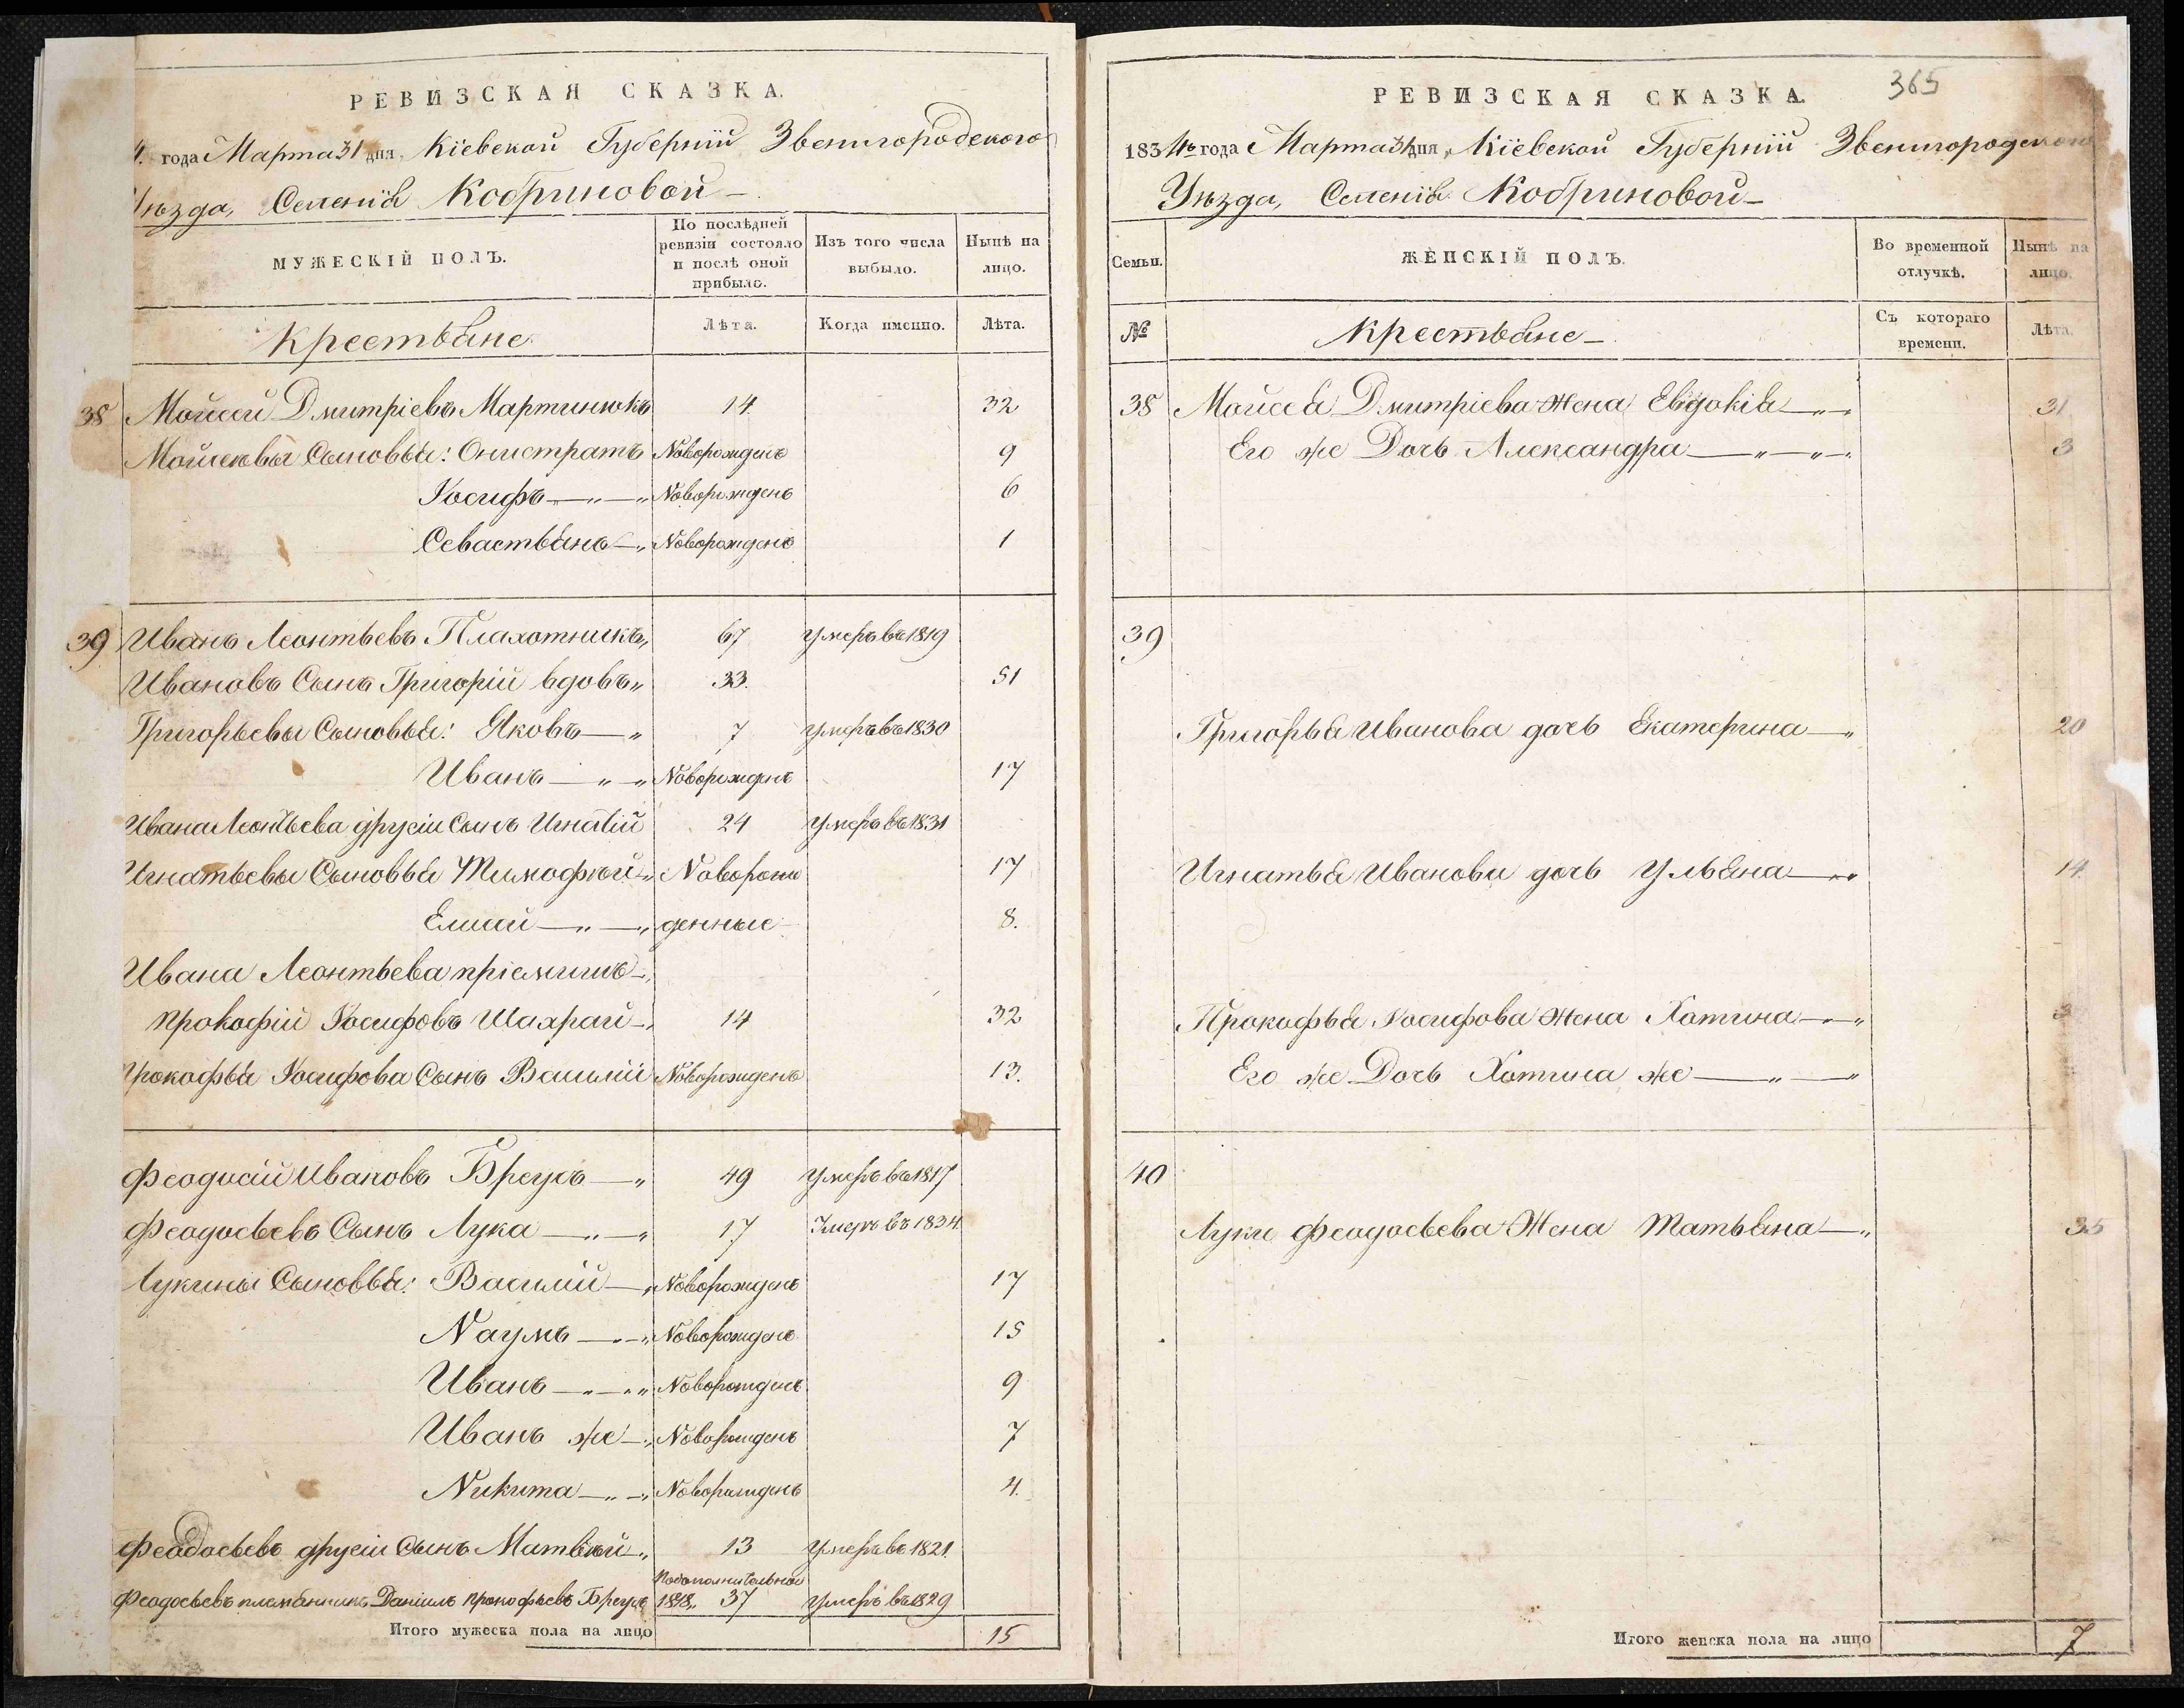 РЕВИЗСКАЯ СКАЗКА.
4. года Марта 31 дня, Кіевской Губерніи Звенигородского
Уѣзда, Селенія Кобриновой
МУЖЕСКІЙ ПОЛЪ.
По послѣдней ревизіи состояло и послѣ оной прибыло.
Изъ того числа выбыло.
Нынѣ на лицо.
Крестьяне
Лѣта.
Когда именно.
Лѣта.
38 Мойсей Дмитріевъ Мартинюкъ 14 32
Мойсеевы Сыновья: Онистратъ Новорожденъ 9
Іосифъ Новорожденъ 6
Севастьянъ Новорожденъ 1
39 Иванъ Леонтьевъ Плахотникъ 67 умеръ въ 1819
Ивановъ Сынъ Григорій вдовъ 33. 51
Григорьевы Сыновья: Яковъ 7 умеръ въ 1830
Иванъ Новорожденъ 17
Ивана Леонтьева другій Сынъ Игнатій 24 умеръ въ 1831
Игнатьевы Сыновья ТимофѣйНоворож 17
Елисей денные 8.
Ивана Леонтьева пріемышъ
Прокофій Іосифовъ Шахрай 14 32
Прокофья Іосифова Сынъ Василій Новорожденъ 13.
Феодосій Ивановъ Бреусъ 49 Умеръ въ 1817
Феодосьевъ Сынъ Лука 17 Умеръ въ 1834
Лукины Сыновья: Василій Новорожденъ 17
Наумъ Новорожденъ 15
Иванъ Новорожденъ 9
Иванъ же Новорожденъ 7
Никита Новорожденъ 4.
Феодосьевъ другій Сынъ Матвѣй 13 Умеръ въ 1821
По дополнительной
Феодосьевъ племянникъ Даніилъ Прокофьевъ Бреусъ 1818, 37 Умеръ въ 1829
Итого мужеска пола на лицо 15
365
РЕВИЗСКАЯ СКАЗКА.
1834го года Марта 31 дня, Кіевской Губерніи Звенигородского
Уѣзда, Селенія Кобриновой
Семьи.
ЖЕНСКІЙ ПОЛЪ.
Во временной отлучкѣ.
Нынѣ на лицо.
№
Крестьяне
Съ котораго времени.
Лѣта.
38 Мойсея Дмитріева Жена Евдокія 31
Его же Дочь Александра 3
39
Григорья Иванова дочь Екатерина 20
Игнатья Иванова дочь Ульяна 14
Прокофья Іосифова Жена Хотина
Его же Дочь Хотина же
40
Луки Феодосьева Жена Татьяна 35
Итого женска пола на лицо 7